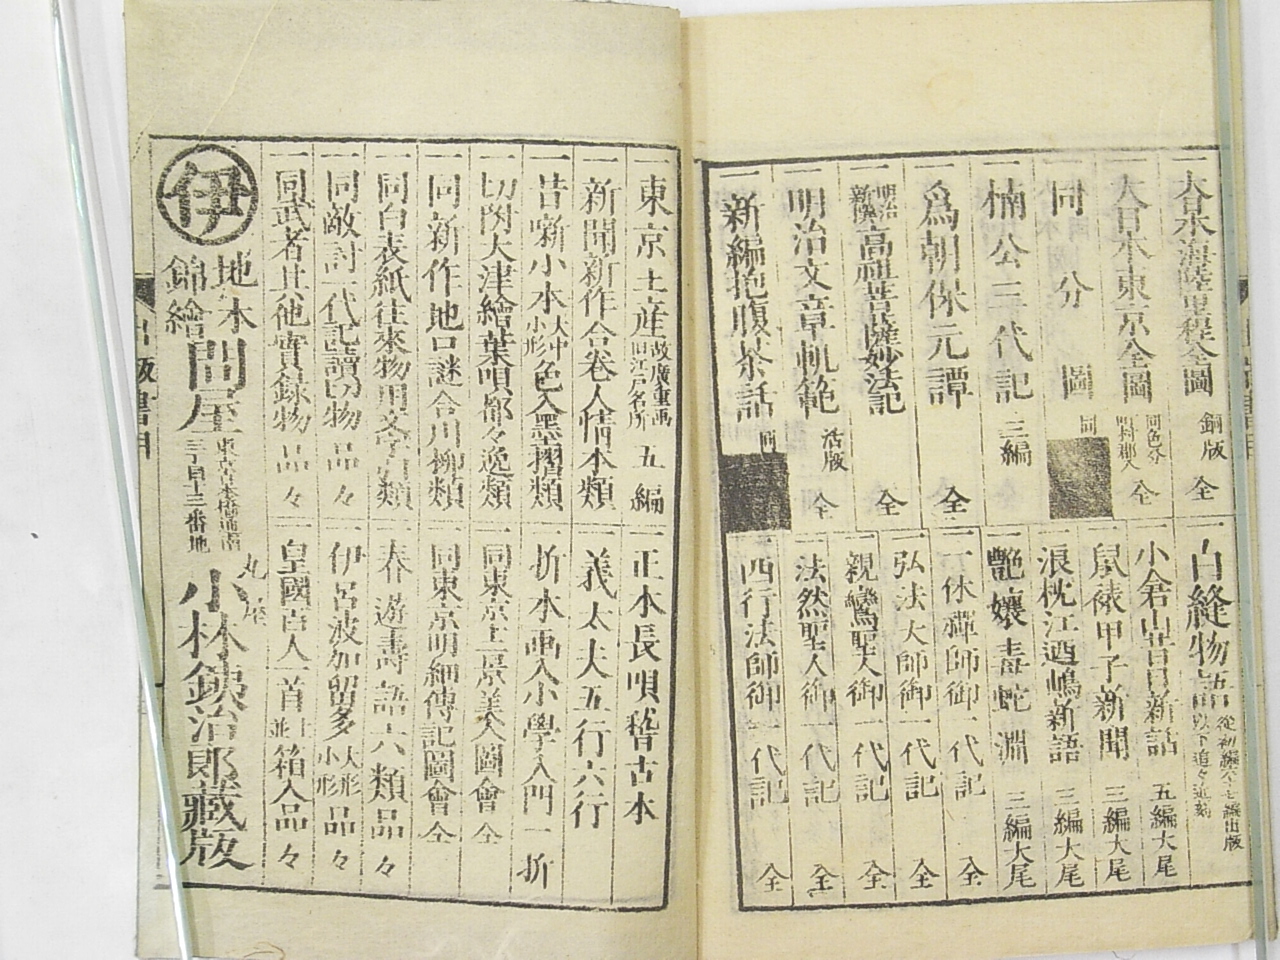 一大日本海陸里程全圖 銅版 全
一大日本東京全圖 同色分 全
一同 分 圖 同
一楠公三代記 三編
一爲朝保元譚 全
一明治新撰高祖菩薩妙法記 全
一明治文章軌範 活版 全
一新編抱腹茶話 同
一白縫物語 從初編六十七編出版 以下追々近刻
一小倉山青日新話 五編大尾
一鼠裱甲子新聞 三編大尾
一浪枕江廼嶋新語 三編大尾
一艶孃毒蛇淵 三編大尾
一一休禪師御一代記 全
一弘法大師御一代記 全
一親鸞聖人御一代記 全
一法然聖人御一代記 全
一西行法師御一代記 全
一東京土産 故廣重画 旧江戸名所 五編
一新聞新作合巻人情本類
一昔噺小本 大中小形 色入墨摺類
一切附大津繪葉唄都々逸類
一同新作地口謎合川柳類
一同白表紙往來物用文字引類
一同敵討一代記讀切物 品々
一同武者其他實録物 品々
一正本長唄稽古本
一義太夫五行六行
一折本画入小學入門 一折
一同東京上景美人圖會 全
一同東京明細傳記圖會 全
一春遊壽語六類品々
一伊呂波加留多 大形小形 品々
一皇國百人一首 上並 箱入品々
伊
地本
錦繪
問屋
東京日本橋通南
三丁目十三番地
丸屋
小林鉄治郎藏版
出版書目